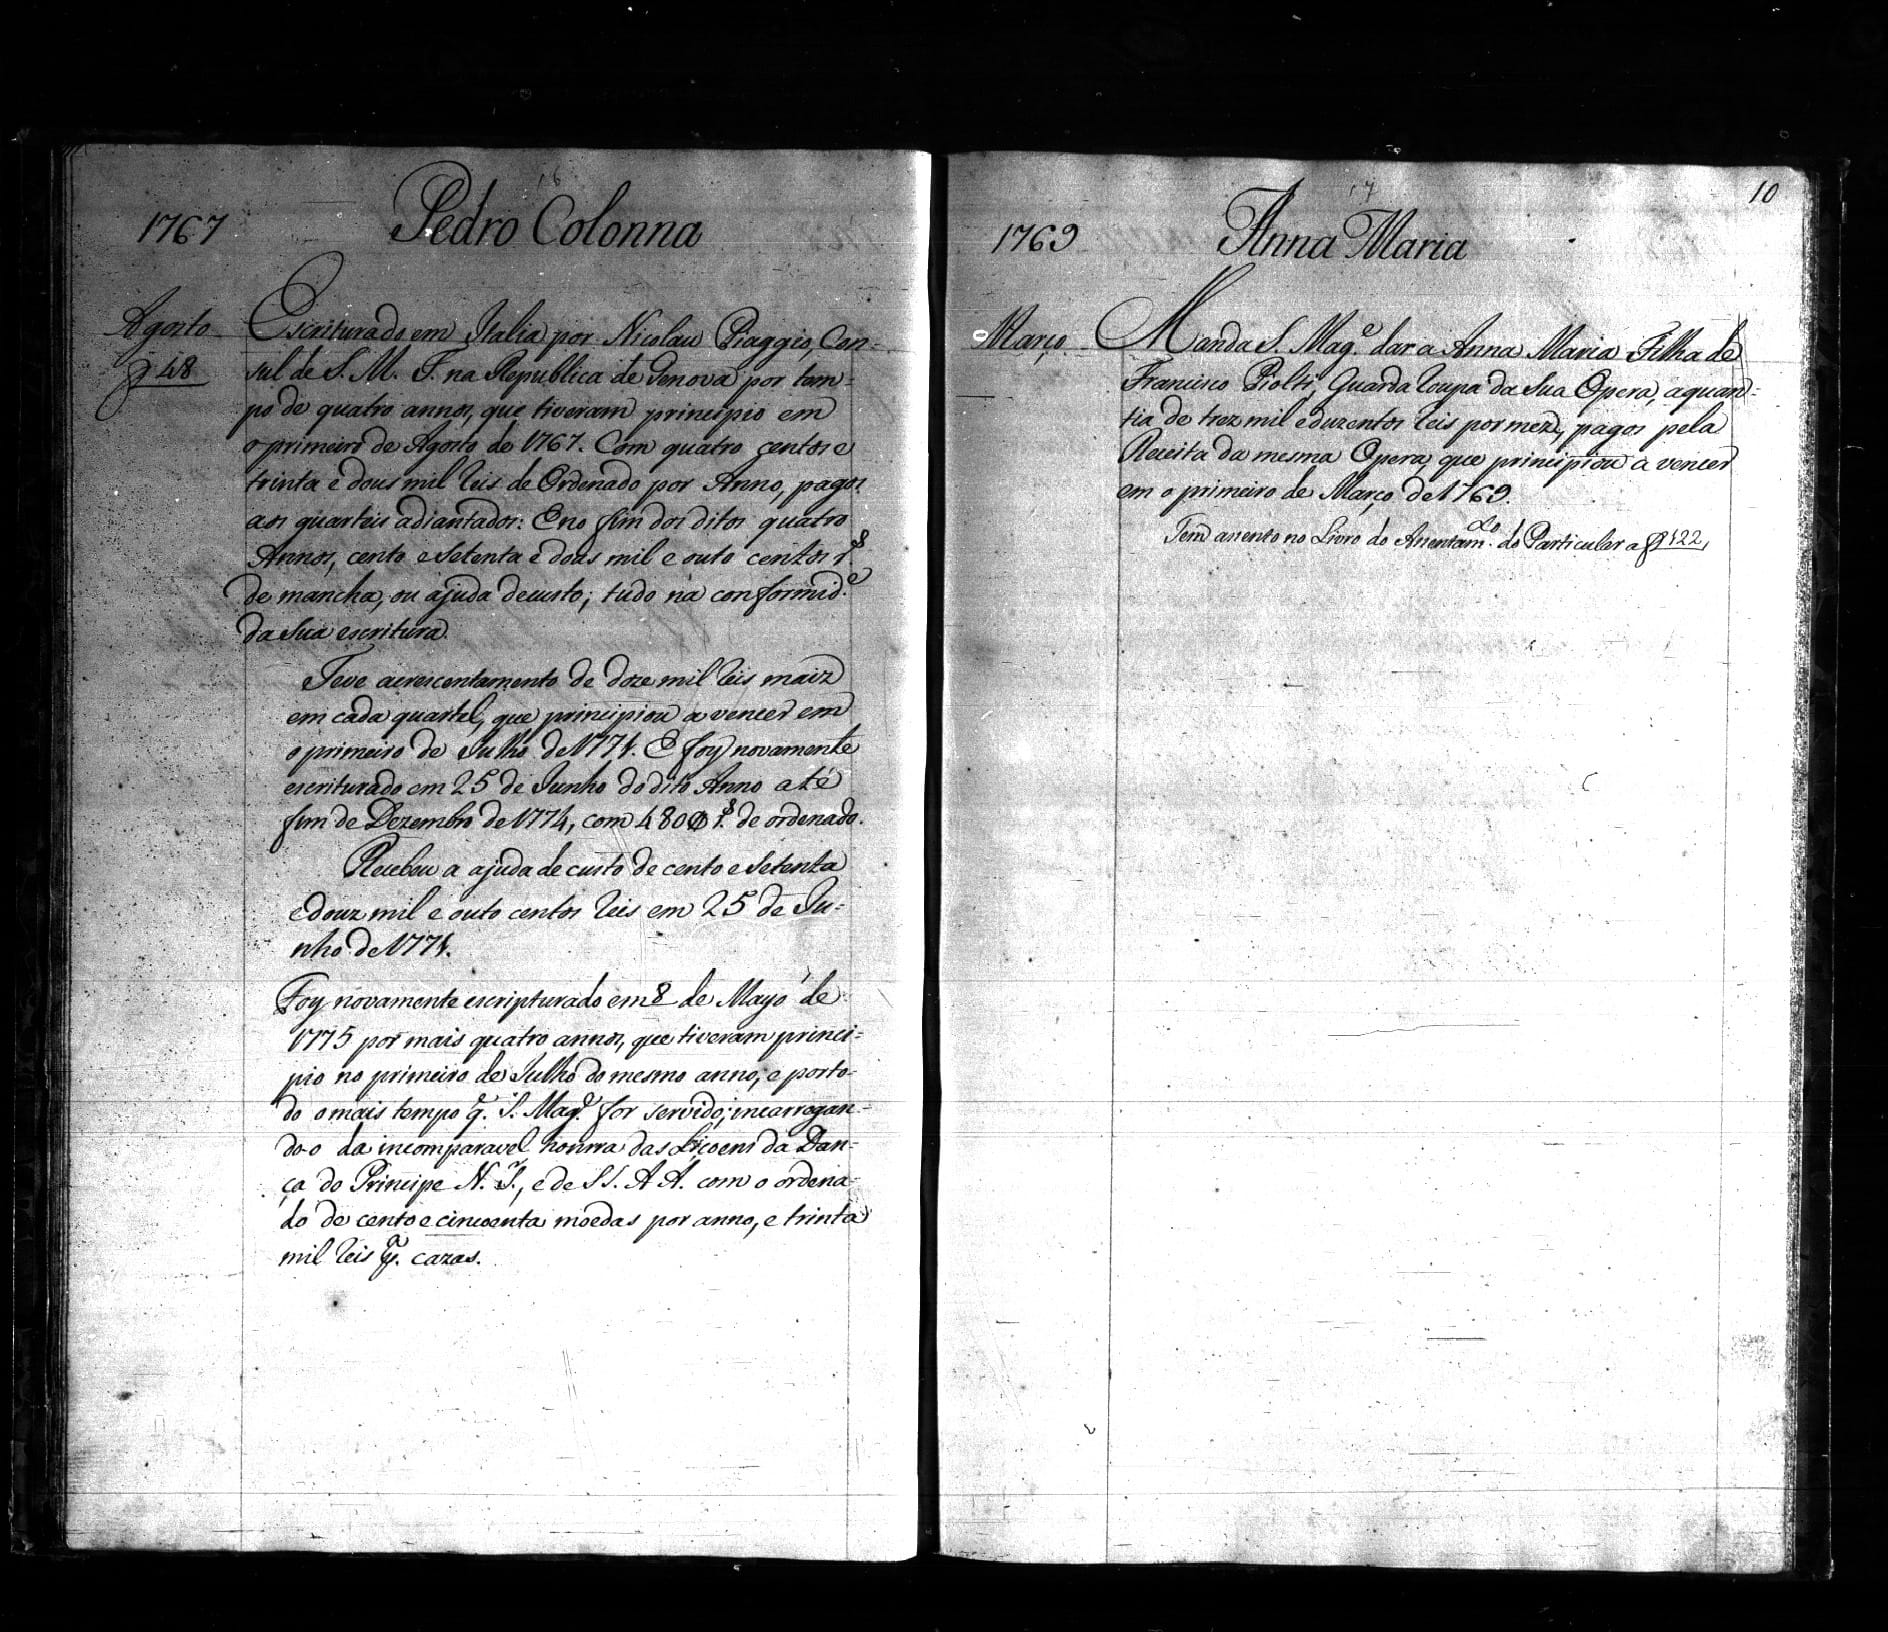 16
1767 Pedro Colonna
Agosto
f 48
Escriturado em Italia por Nicolau Piaggio, Con-
sul de S. M. F. na Republica de Genova por tem-
po de quatro annos, que tiveram principio em
o primeiro de Agosto de 1767. Com quatro centos e
trinta e dous mil reis de Ordenado por Anno, pagos
aos quarteis adiantados: E no fim dos ditos quatro
Annos, cento e setenta e dous mil e outo centos rs.
de mancha, ou ajuda decusto; tudo na conformid.e
da sua escritura.
Teve acrescentamento de doze mil reis maiz
em cada quartel, que principiou a vencer em
o primeiro de Julho de 1771. E foy novamente
escriturado em 25 de Junho do dito Anno até
fim de Dezembro de 1774, com 480$ rs. de ordenado.
Recebeu a ajuda de custo de cento e setenta
e douz mil e outo centos reis em 25 de Ju-
nho de 1771.
Foy novamente escripturado em 8 de Mayo de
1775 por mais quatro annos, que tiveram princi-
pio no primeiro de Julho do mesmo anno, e por to-
do o mais tempo q. S. Mag.e for servido; incarregan-
do-o da incomparavel honrra das Liçoens da Dan-
ça do Principe N. S.r, e de SS. A A. com o ordena-
do de cento e cincoenta moedas por anno, e trinta
mil reis p.a cazas.
17
10
1769 Anna Maria
Março
Manda S. Mag.e dar a Anna Maria Filha de
Francisco Piolti, Guarda roupa da sua Opera, a quan-
tia de trez mil e duzentos reis por mez, pagos pela
Receita da mesma Opera, que principiou a vencer
em o primeiro de Março de 1769.
Tem acento no Livro do Acentam.to do Particular a f 122,